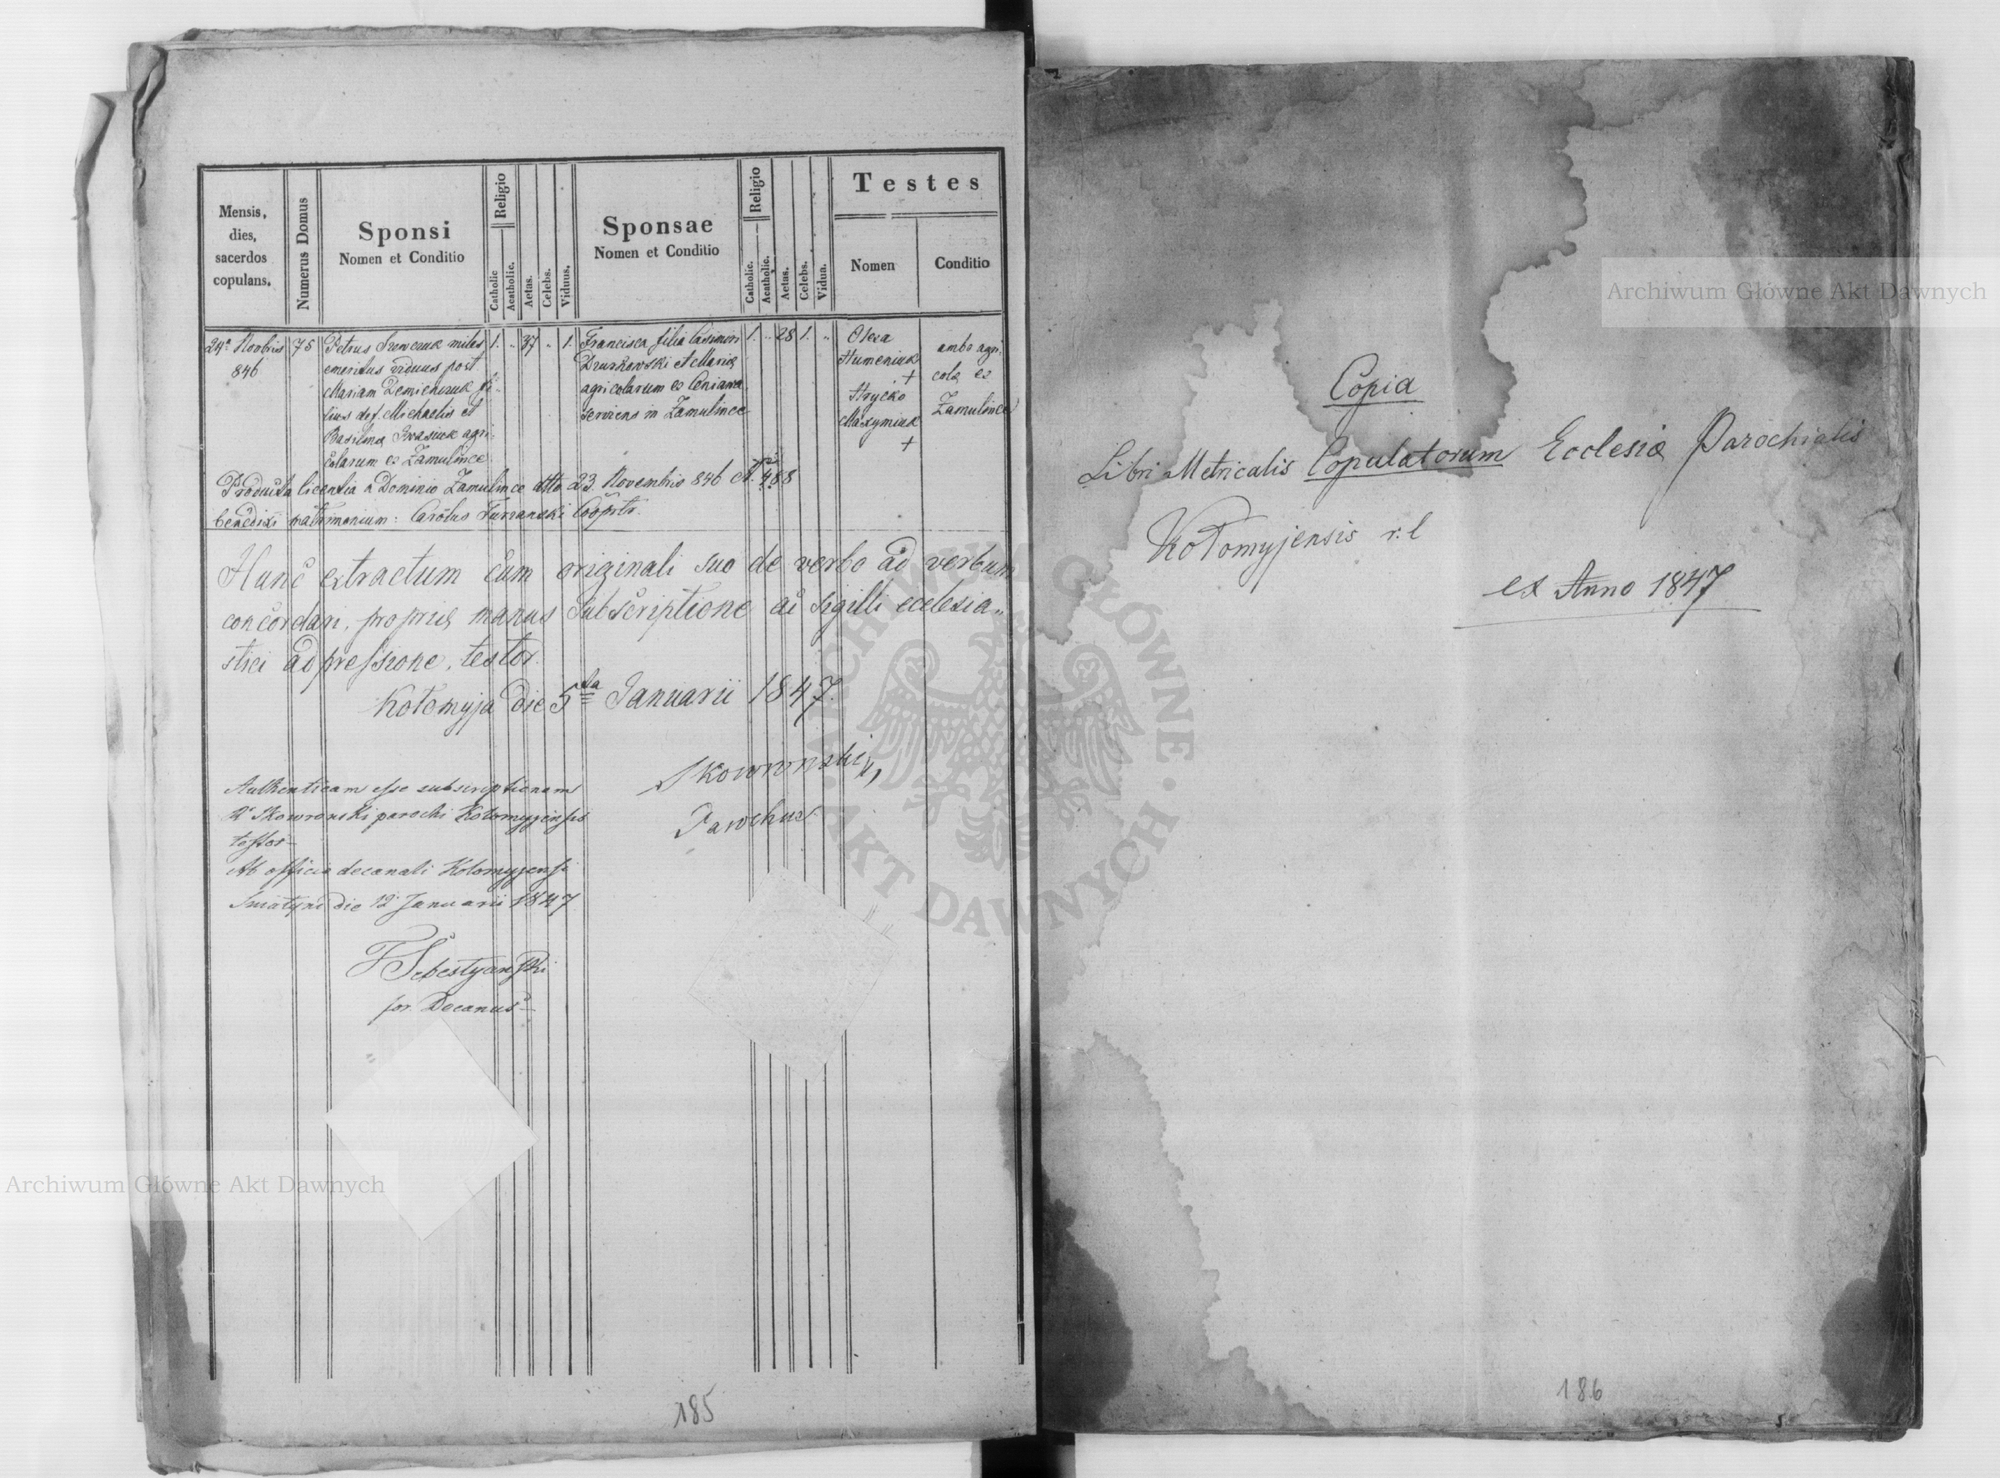 Mensis,
dies,
sacerdos
copulans.
Numerus Domus
Sponsi
Nomen et Conditio
Religio
Catholic
Acatholic.
Aetas.
Celebs.
Viduus.
Sponsae
Nomen et Conditio
Religio
Catholic.
Acatholic.
Aetas.
Celebs.
Vidua.
Testes
Nomen
Conditio
24a Novbris
846
75
Petrus Szewczuk miles
emeritus viduus post
Mariam Demiczuk fi-
lius def. Michaelis et
Basilina Iwasiuk agri-
colarum ex Zamulince
1. " 37 " 1.
Francisca filia Casimiri
et Mariae
agricolarum ex
serviens in Zamulince
1. " 28 1. "
Olexa
Humeniuk
+
Hryćko
Maxymiuk
+
ambo agri-
colae ex
Zamulince
Producta licentia a Dominio Zamulince ddto 23 Novembris 846 No 488
benedixi matrimonium: Carolus Turzanski Cooptr.
Hunc extractum cum originali suo de verbo ad verbum
concordari, propriae manus Subscriptione ac sigilli ecclesia-
stici adpressione, testor.
Kołomyja die 5ta Januarii 1847.
Skowronski
Parochus
Authenticam esse subscriptionem
Skowronski parochi Kolomyjensis
testor
Ab officio decanali Kolomyjensi
Sniatyn die 12 Januarii 1847
Sebestyanski
Decanus
185
Copia
Libri Metricalis Copulatorum Ecclesiae Parochialis
Kołomyjensis r. l
ex Anno 1847
186
Archiwum Główne Akt Dawnych
Archiwum Główne Akt Dawnych
ARCHIWUM GŁÓWNE · AKT DAWNYCH ·